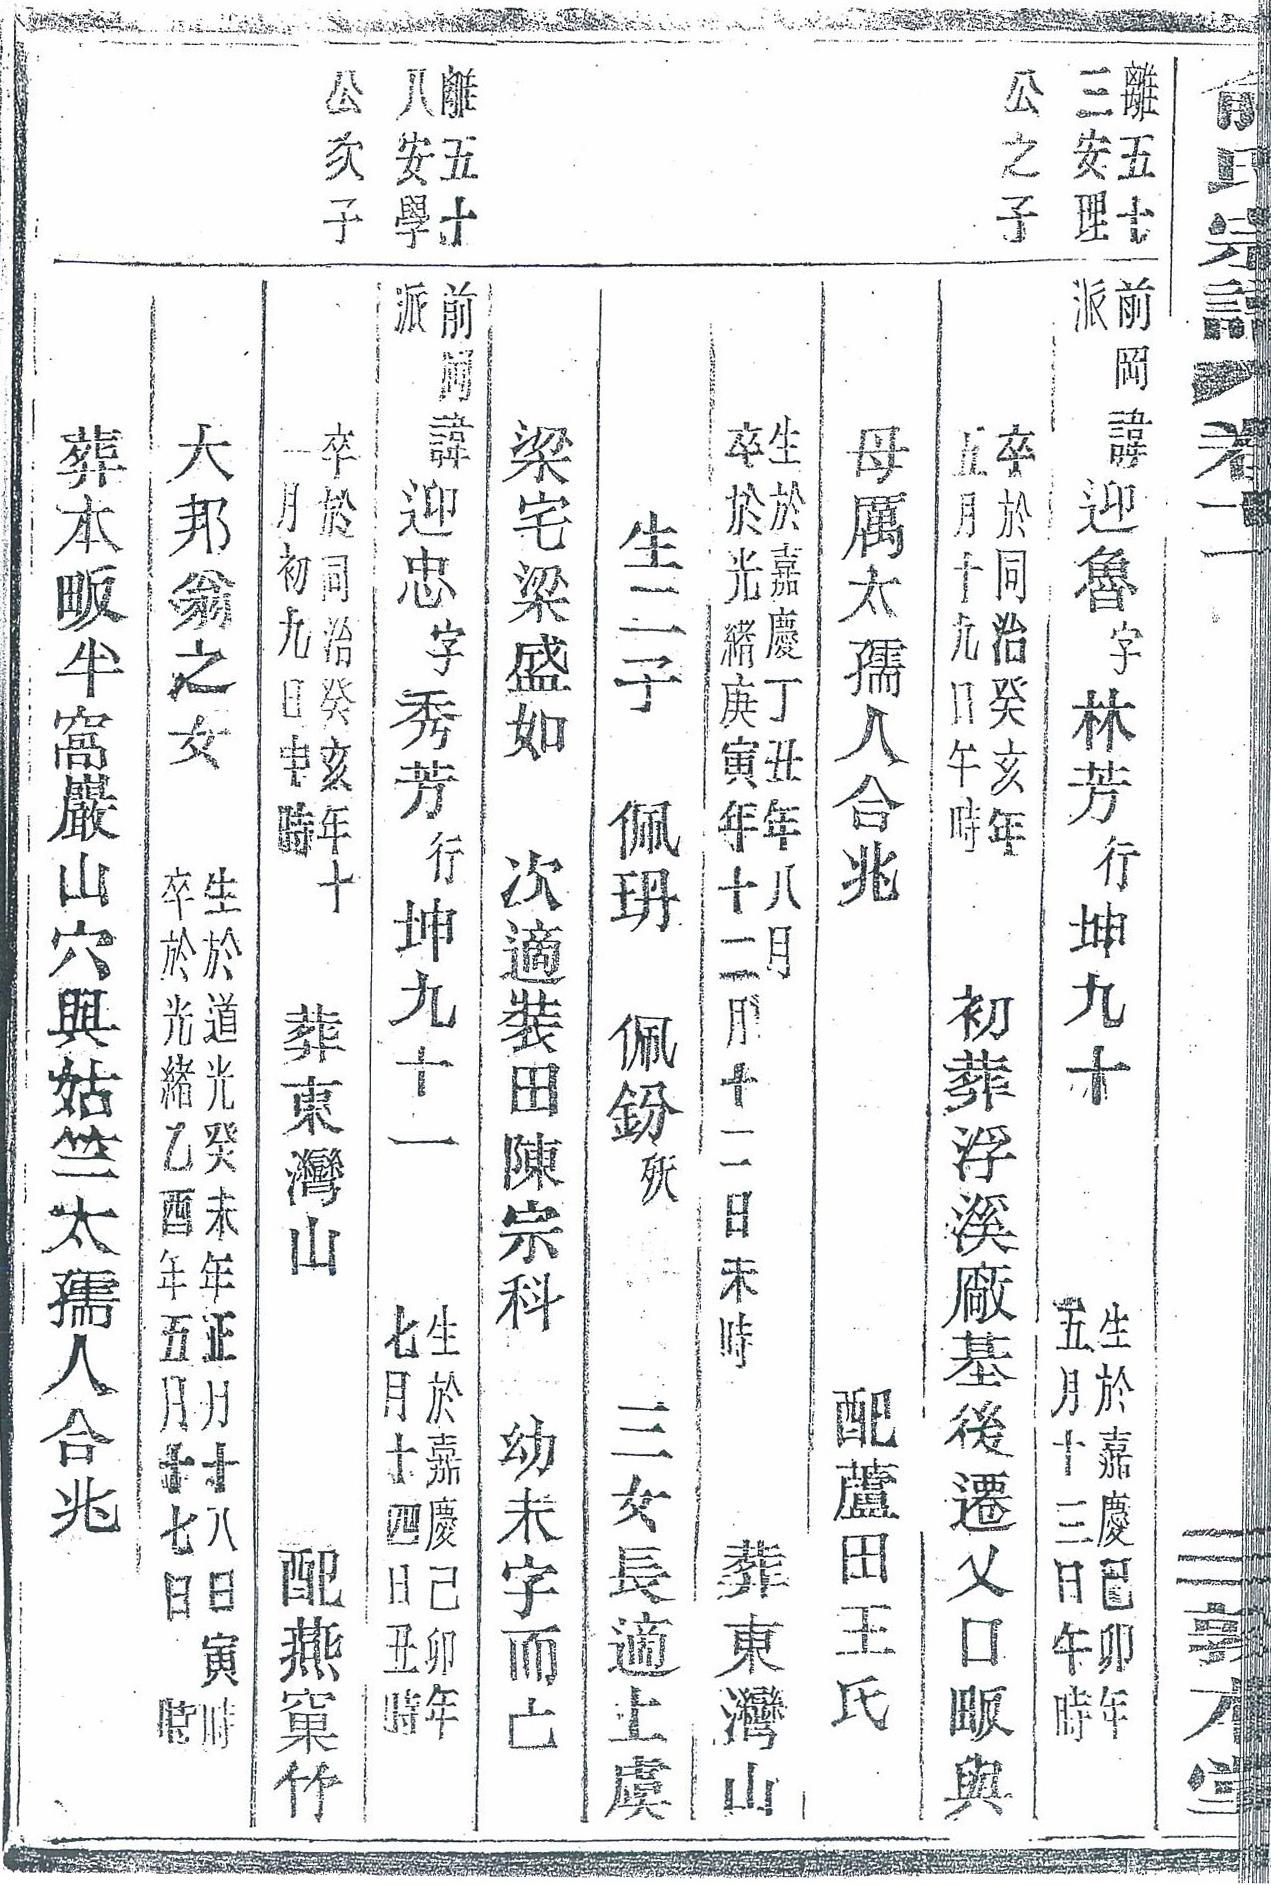 俞氏宗譜 卷十一 三 敦本堂
離五十
三安理
公之子
前岡
派
諱迎魯字林芳行坤九十
生於嘉慶己卯年
五月十三日午時
卒於同治癸亥年
五月十九日午時
初葬浮溪廠基後遷乂口畈與
母厲太孺人合兆
配蘆田王氏
生於嘉慶丁丑年八月
卒於光緒庚寅年十二月十二日未時
葬東灣山
生二子 佩玬 佩鈖 殀 三女長適上虞
梁宅梁盛如 次適裝田陳宗科 幼未字而亡
離五十
八安學
公次子
前岡
派
諱迎忠字秀芳行坤九十一
生於嘉慶己卯年
七月十四日丑時
卒於同治癸亥年十
一月初九日申時
葬東灣山
配燕窠竹
大邦翁之女
生於道光癸未年正月十八日寅時
卒於光緒乙酉年五月十七日 時
葬本畈半窩巖山穴與姑竺太孺人合兆